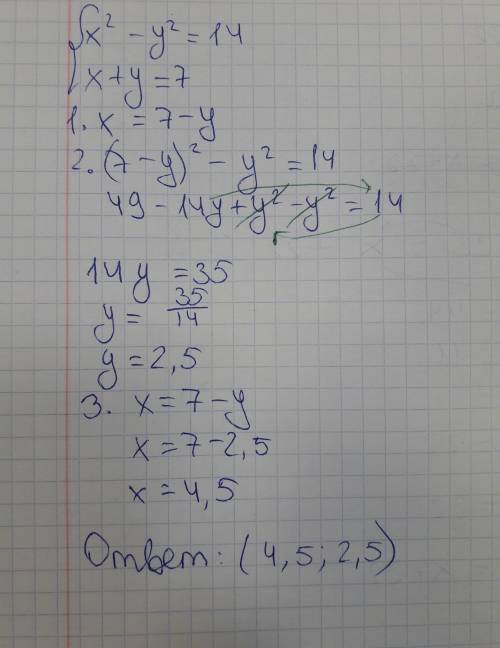 x² - y² = 14
x + y = 7
1. x = 7 - y
2. (7 - y)² - y² = 14
49 - 14y + y² - y² = 14
14y = 35
y = 35/14
y = 2,5
3. x = 7 - y
x = 7 - 2,5
x = 4,5
Ответ: (4,5; 2,5)